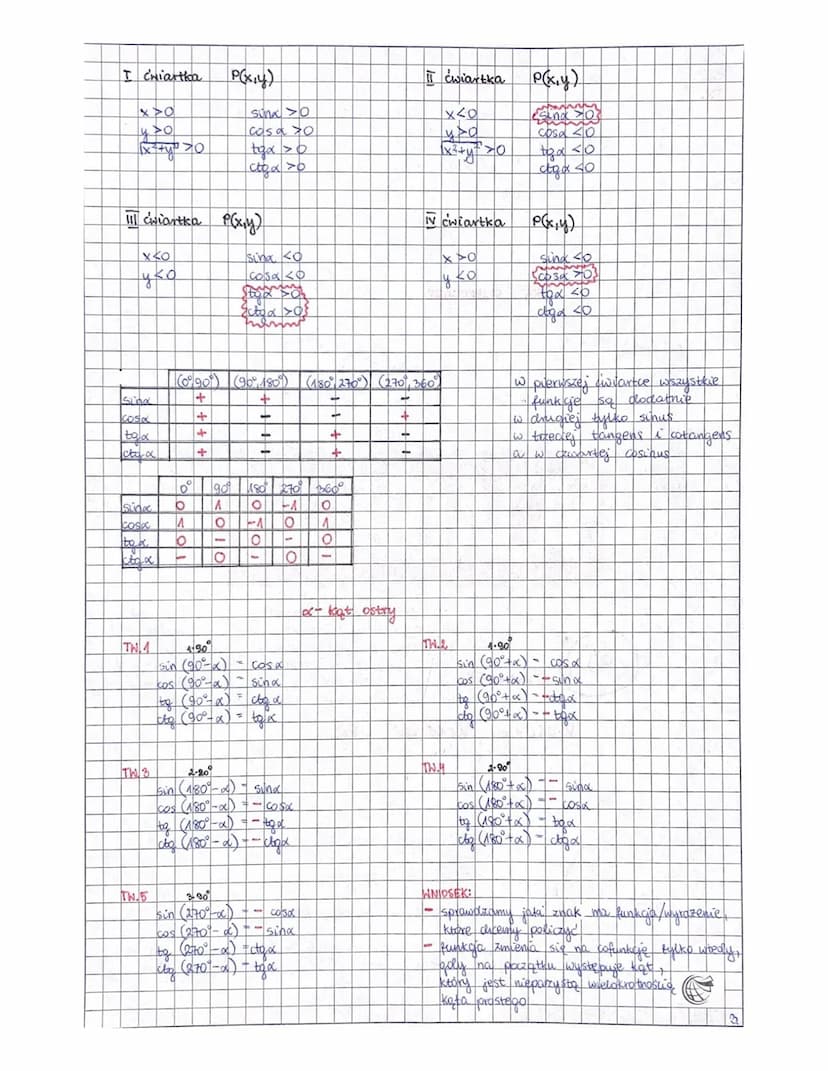 I ćwiartka P(x,y)
x>0 sinα >0
y>0 cosα >0
√x²+y² >0 tgα >0
ctgα >0
II ćwiartka P(x,y)
x<0 sinα >0
y>0 cosα <0
√x²+y² >0 tgα <0
ctgα <0
III ćwiartka P(x,y)
x<0 sinα <0
y<0 cosα <0
tgα >0
ctgα >0
IV ćwiartka P(x,y)
x>0 sinα <0
y<0 cosα >0
tgα <0
ctgα <0
(0°,90°) (90°,180°) (180°,270°) (270°,360°)
sinα + + - -
cosα + - - +
tgα + - + -
ctgα + - + -
w pierwszej ćwiartce wszystkie
funkcje są dodatnie
w drugiej tylko sinus
w trzeciej tangens i cotangens
a w czwartej cosinus
0° 90° 180° 270° 360°
sinα 0 1 0 -1 0
cosα 1 0 -1 0 1
tgα 0 - 0 - 0
ctgα - 0 - 0 -
α - kąt ostry
TW.1 1·90°
sin (90°-α) = cosα
cos (90°-α) = sinα
tg (90°-α) = ctgα
ctg (90°-α) = tgα
TW.2 1·90°
sin (90°+α) = cosα
cos (90°+α) = -sinα
tg (90°+α) = -ctgα
ctg (90°+α) = -tgα
TW.3 2·90°
sin (180°-α) = sinα
cos (180°-α) = -cosα
tg (180°-α) = -tgα
ctg (180°-α) = -ctgα
TW.4 2·90°
sin (180°+α) = -sinα
cos (180°+α) = -cosα
tg (180°+α) = tgα
ctg (180°+α) = ctgα
TW.5 3·90°
sin (270°-α) = -cosα
cos (270°-α) = -sinα
tg (270°-α) = ctgα
ctg (270°-α) = tgα
WNIOSEK:
- sprawdzamy jaki znak ma funkcja/wyrażenie,
które chcemy policzyć
- funkcja zmienia się na cofunkcję tylko wtedy,
gdy na początku występuje kąt,
który jest nieparzystą wielokrotnością
kąta prostego